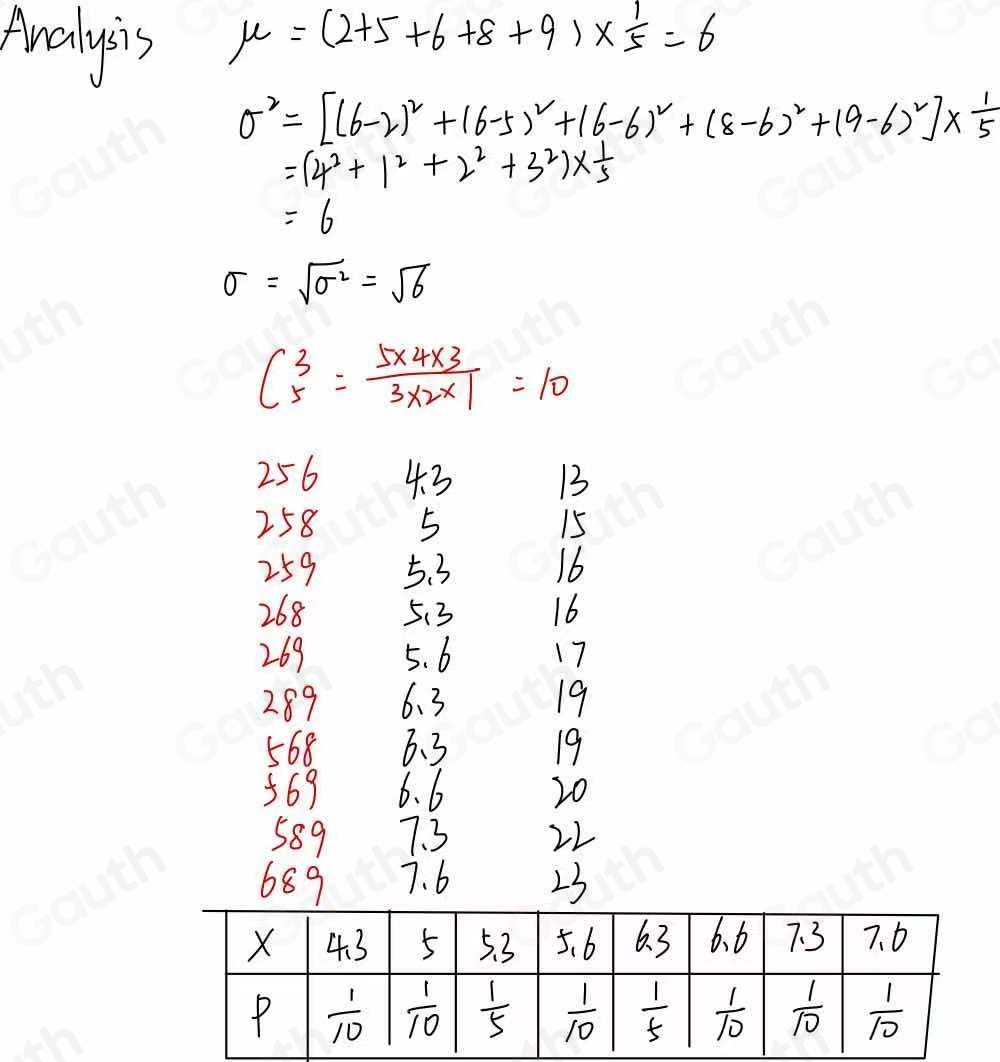 Analysis μ = (2+5+6+8+9)×1/5 = 6
σ² = [(6-2)²+(6-5)²+(6-6)²+(8-6)²+(9-6)²]×1/5
= (4²+1²+2²+3²)×1/5
= 6
σ = √σ² = √6
C₅³ = (5×4×3)/(3×2×1) = 10
256 4.3 13
258 5 15
259 5.3 16
268 5.3 16
269 5.6 17
289 6.3 19
568 6.3 19
569 6.6 20
589 7.3 22
689 7.6 23
X 4.3 5 5.3 5.6 6.3 6.6 7.3 7.6
P 1/10 1/10 1/5 1/10 1/5 1/10 1/10 1/10